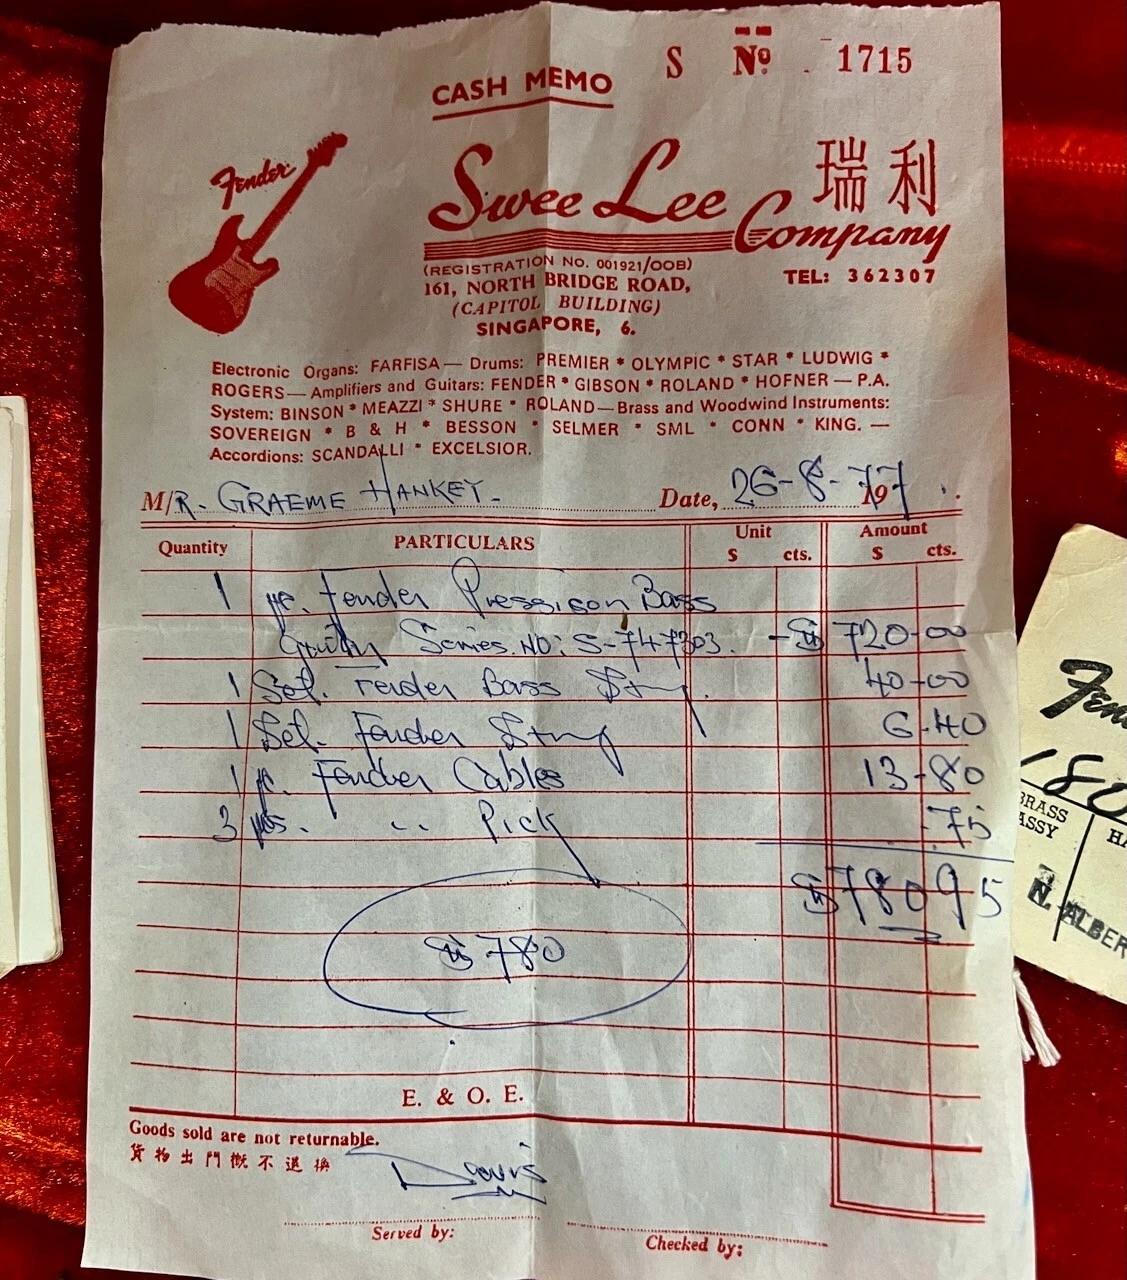 S Nº. 1715
CASH MEMO
Fender
Swee Lee Company
瑞利
(REGISTRATION NO. 001921/00B)
161, NORTH BRIDGE ROAD,
(CAPITOL BUILDING)
SINGAPORE, 6.
TEL: 362307
Electronic Organs: FARFISA — Drums: PREMIER * OLYMPIC * STAR * LUDWIG *
ROGERS — Amplifiers and Guitars: FENDER * GIBSON * ROLAND * HOFNER — P.A.
System: BINSON * MEAZZI * SHURE * ROLAND — Brass and Woodwind Instruments:
SOVEREIGN * B & H * BESSON * SELMER * SML * CONN * KING. —
Accordions: SCANDALLI * EXCELSIOR.
M/R. GRAEME HANKEY. Date, 26-8-77 197
Quantity PARTICULARS Unit $ cts. Amount $ cts.
1 pc. Fender Pressison Bass
Guitar Series. NO: S-747303. - $ 720-00
1 Set. Fender Bass String. 40-00
1 Set. Fender String 6.40
1 pc. Fender Cables 13-80
3 pcs. " Pick .75
$780 95
$780
E. & O. E.
Goods sold are not returnable.
貨物出門概不退換
Served by:
Checked by:
Fen
180
BRASS
ASSY
HA
N. ALBER